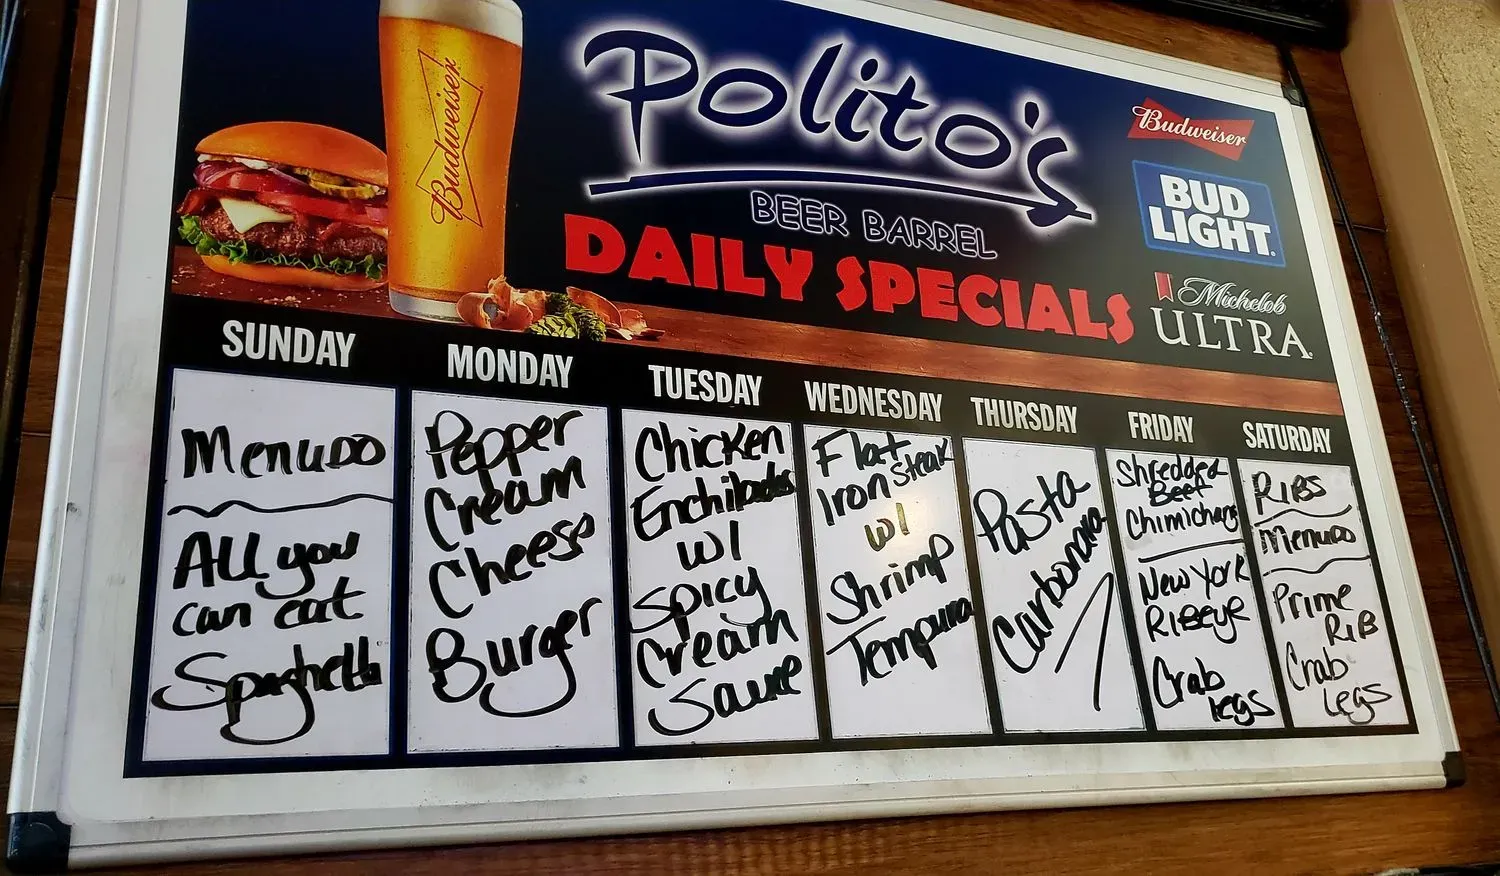 Budweiser
Polito's
BEER BARREL
DAILY SPECIALS
Budweiser
BUD
LIGHT
Michelob
ULTRA
SUNDAY
Menudo
All you
can eat
Spaghetti
MONDAY
Pepper
Cream
Cheese
Burger
TUESDAY
Chicken
Enchiladas
w/
Spicy
Cream
Sauce
WEDNESDAY
Flat
Iron Steak
w/
Shrimp
Tempura
THURSDAY
Pasta
Carbonara
FRIDAY
Shredded
Beef
Chimichang
New York
Ribeye
Crab
legs
SATURDAY
Ribs
Menudo
Prime
Rib
Crab
Legs